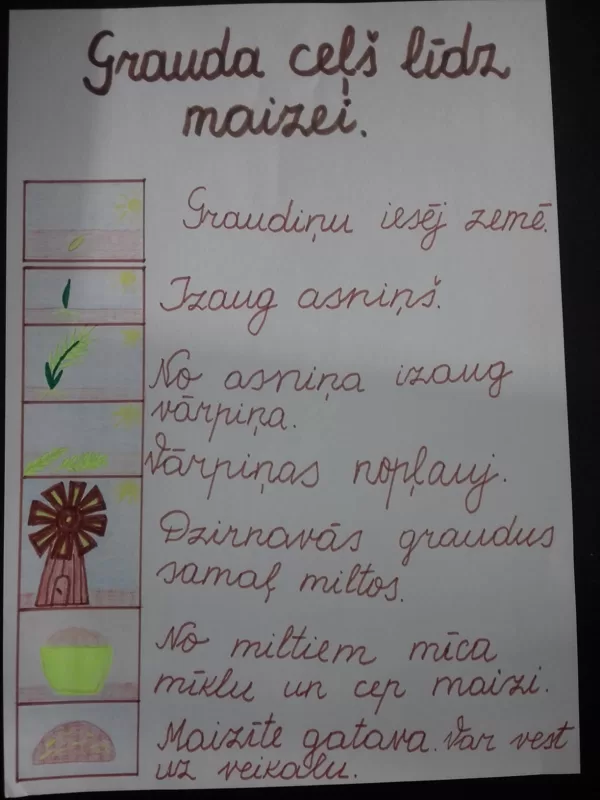 Grauda ceļš līdz
maizei.
Graudiņu iesēj zemē.
Izaug asniņš.
No asniņa izaug
vārpiņa.
Vārpiņas nopļauj.
Dzirnavās graudus
samaļ miltos.
No miltiem mīca
mīklu un cep maizi.
Maizīte gatava. Var vest
uz veikalu.